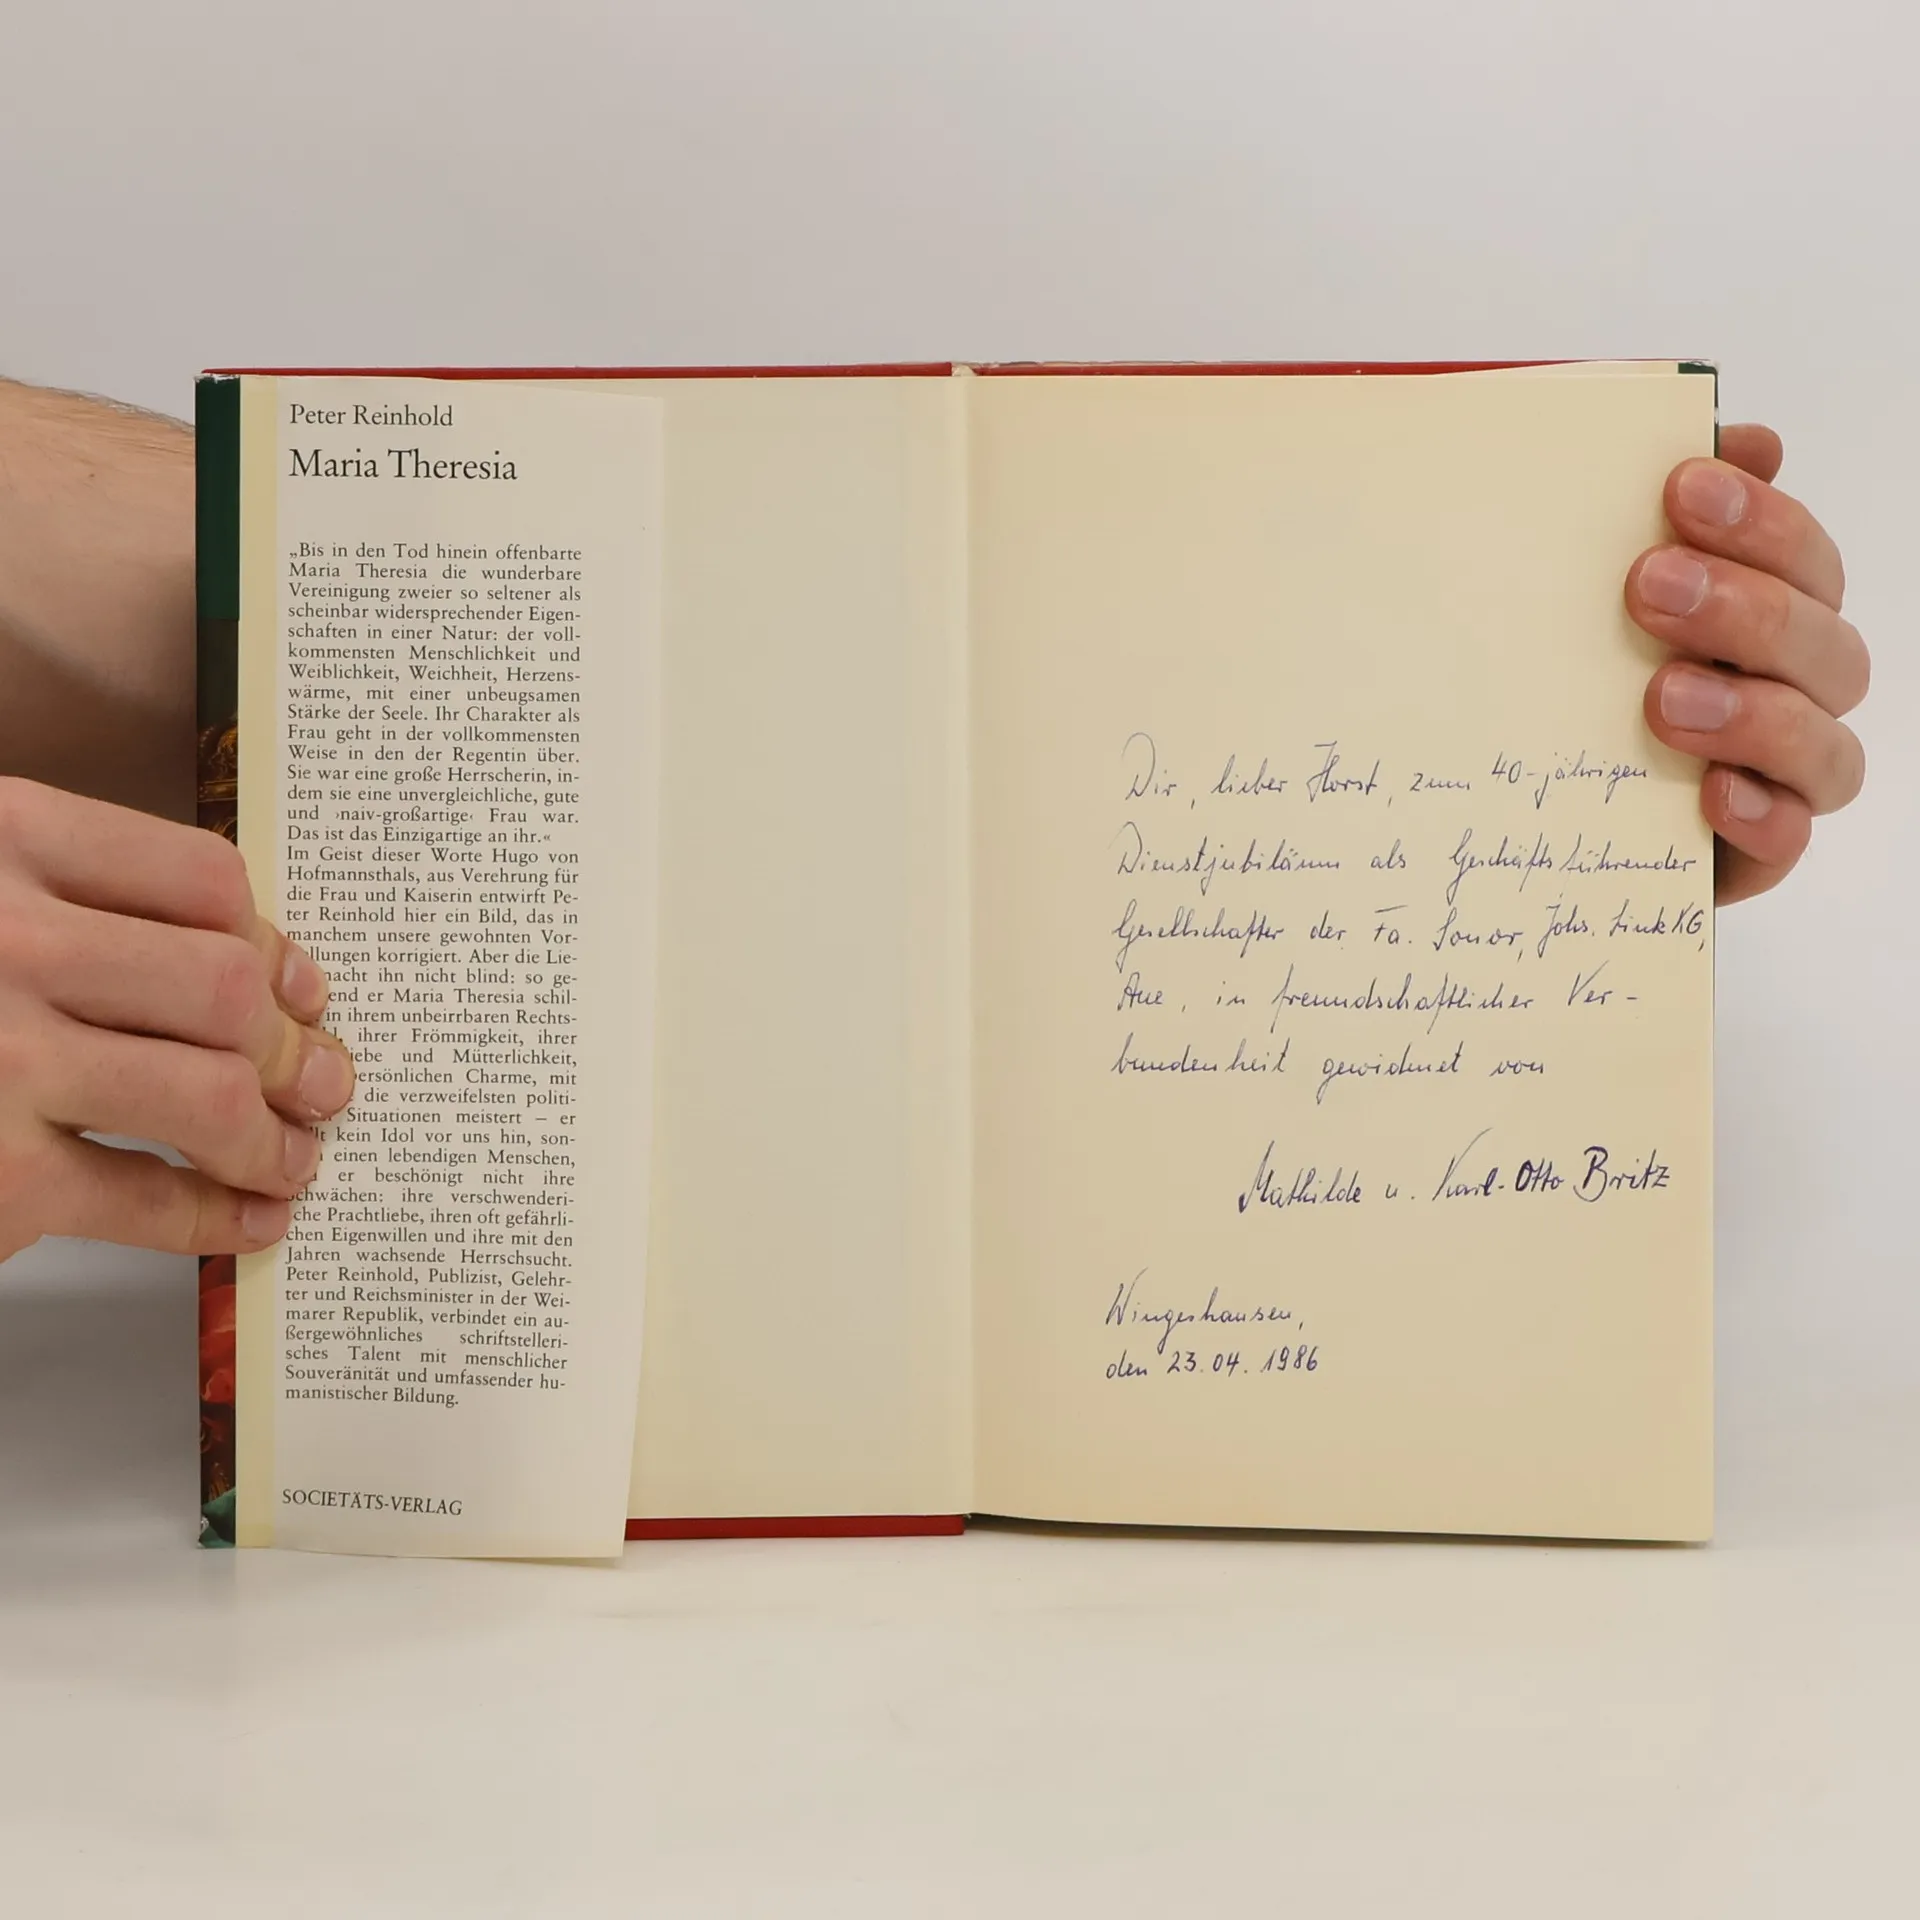 Peter Reinhold
Maria Theresia
„Bis in den Tod hinein offenbarte
Maria Theresia die wunderbare
Vereinigung zweier so seltener als
scheinbar widersprechender Eigen-
schaften in einer Natur: der voll-
kommensten Menschlichkeit und
Weiblichkeit, Weichheit, Herzens-
wärme, mit einer unbeugsamen
Stärke der Seele. Ihr Charakter als
Frau geht in der vollkommensten
Weise in den der Regentin über.
Sie war eine große Herrscherin, in-
dem sie eine unvergleichliche, gute
und ›naiv-großartige‹ Frau war.
Das ist das Einzigartige an ihr.«
Im Geist dieser Worte Hugo von
Hofmannsthals, aus Verehrung für
die Frau und Kaiserin entwirft Pe-
ter Reinhold hier ein Bild, das in
manchem unsere gewohnten Vor-
llungen korrigiert. Aber die Lie-
macht ihn nicht blind: so ge-
end er Maria Theresia schil-
in ihrem unbeirrbaren Rechts-
ihrer Frömmigkeit, ihrer
iebe und Mütterlichkeit,
ersönlichen Charme, mit
die verzweifelsten politi-
Situationen meistert – er
llt kein Idol vor uns hin, son-
einen lebendigen Menschen,
er beschönigt nicht ihre
chwächen: ihre verschwenderi-
che Prachtliebe, ihren oft gefährli-
chen Eigenwillen und ihre mit den
Jahren wachsende Herrschsucht.
Peter Reinhold, Publizist, Gelehr-
ter und Reichsminister in der Wei-
marer Republik, verbindet ein au-
ßergewöhnliches schriftstelleri-
sches Talent mit menschlicher
Souveränität und umfassender hu-
manistischer Bildung.
SOCIETÄTS-VERLAG
Dir, lieber Horst, zum 40-jährigen
Dienstjubiläum als Geschäftsführender
Gesellschafter der Fa. Sonor, Johs. Link KG,
Aue, in freundschaftlicher Ver-
bundenheit gewidmet von
Mathilde u. Karl-Otto Britz
Wingeshausen,
den 23.04.1986